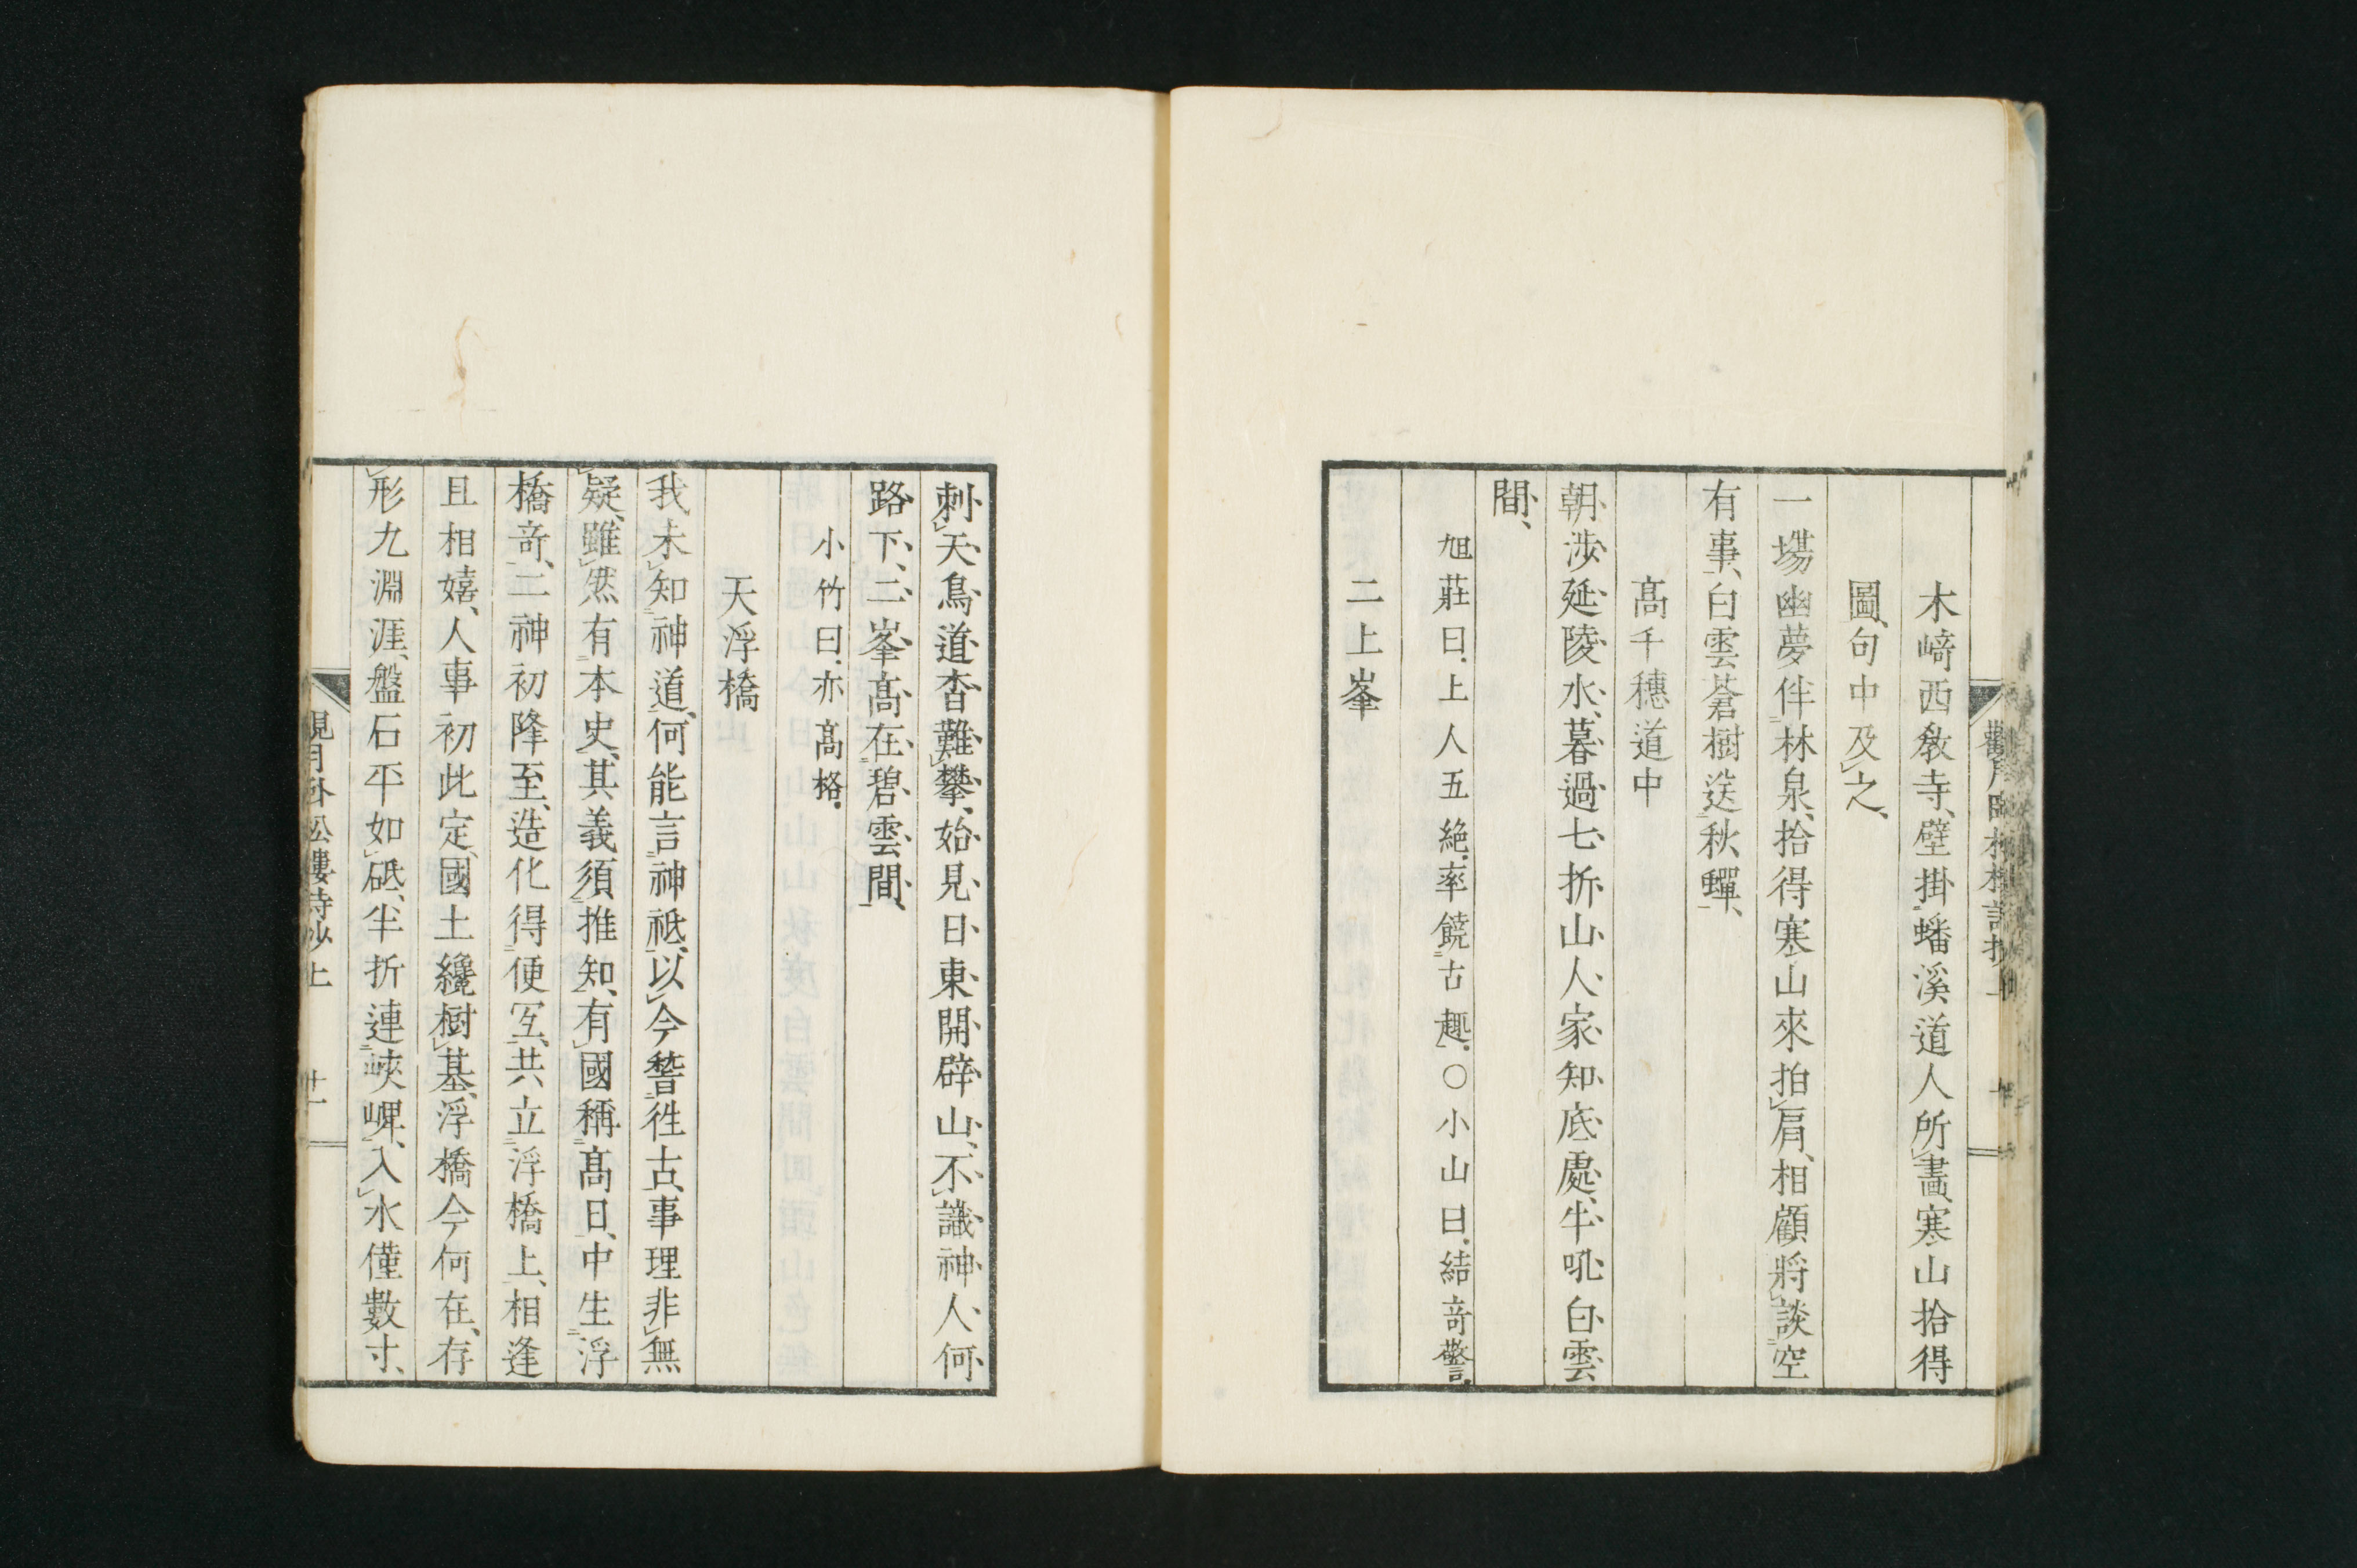 木﨑西敎寺、壁掛蟠溪道人所畫寒山拾得
圖、句中及之、
一塲幽夢伴林泉、拾得寒山來拍肩、相顧將談空
有事、白雲蒼樹送秋蟬、
髙千穗道中
朝涉延陵水、暮過七折山、人家知底處、牛吼白雲
間、
旭莊曰、上人五絶、率饒古趣、○小山曰、結竒警、
二上峯
刺天鳥道杳難攀、始見日東開辟山、不識神人何
路下、二峯髙在碧雲間、
小竹曰、亦髙格、
天浮橋
我未知神道、何能言神祗、以今譬徃古、事理非無
疑、雖然有本史、其義須推知、有國稱髙日、中生浮
橋竒、二神初降至、造化得便冝、共立浮橋上、相逢
且相嬉、人事初此定、國土纔樹基、浮橋今何在、存
形九淵涯、盤石平如砥、半折連峽崥、入水僅數寸、
松樓詩抄上
十一